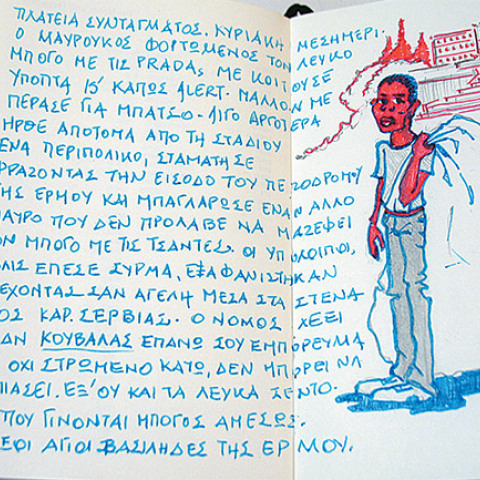 ΠΛΑΤΕΙΑ ΣΥΝΤΑΓΜΑΤΟΣ. ΚΥΡΙΑΚΗ ΜΕΣΗΜΕΡΙ.
Ο ΜΑΥΡΟΥΚΟΣ ΦΟΡΤΩΜΕΝΟΣ ΤΟΝ ΛΕΥΚΟ
ΜΠΟΓΟ ΜΕ ΤΙΣ PRADAs, ΜΕ ΚΟΙΤΟΥΣΕ
ΥΠΟΠΤΑ ΚΑΠΩΣ ALERT. ΜΑΛΛΟΝ ΜΕ
ΠΕΡΑΣΕ ΓΙΑ ΜΠΑΤΣΟ - ΛΙΓΟ ΑΡΓΟΤΕΡΑ
ΗΡΘΕ ΑΠΟΤΟΜΑ ΑΠΟ ΤΗ ΣΤΑΔΙΟΥ
ΕΝΑ ΠΕΡΙΠΟΛΙΚΟ, ΣΤΑΜΑΤΗΣΕ
ΦΡΑΖΟΝΤΑΣ ΤΗΝ ΕΙΣΟΔΟ ΤΟΥ ΠΕΖΟΔΡΟΜΟΥ
ΤΗΣ ΕΡΜΟΥ ΚΑΙ ΜΠΑΓΛΑΡΩΣΕ ΕΝΑΝ ΑΛΛΟ
ΜΑΥΡΟ ΠΟΥ ΔΕΝ ΠΡΟΛΑΒΕ ΝΑ ΜΑΖΕΨΕΙ
ΤΟΝ ΜΠΟΓΟ ΜΕ ΤΙΣ ΤΣΑΝΤΕΣ. ΟΙ ΥΠΟΛΟΙΠΟΙ,
ΜΟΛΙΣ ΕΠΕΣΕ ΣΥΡΜΑ, ΕΞΑΦΑΝΙΣΤΗΚΑΝ
ΤΡΕΧΟΝΤΑΣ ΣΑΝ ΑΓΕΛΗ ΜΕΣΑ ΣΤΑ ΣΤΕΝΑ
ΚΑΡ. ΣΕΡΒΙΑΣ. Ο ΝΟΜΟΣ
ΑΝ ΚΟΥΒΑΛΑΣ ΕΠΑΝΩ ΣΟΥ ΕΜΠΟΡΕΥΜΑ
ΟΧΙ ΣΤΡΩΜΕΝΟ ΚΑΤΩ, ΔΕΝ ΜΠΟΡΕΙ ΝΑ
ΠΙΑΣΕΙ. ΕΞ'ΟΥ ΚΑΙ ΤΑ ΛΕΥΚΑ ΣΕΝΤΟ-
ΠΟΥ ΓΙΝΟΝΤΑΙ ΜΠΟΓΟΣ ΑΜΕΣΩΣ.
ΑΓΙΟΙ ΒΑΣΙΛΗΔΕΣ ΤΗΣ ΕΡΜΟΥ.